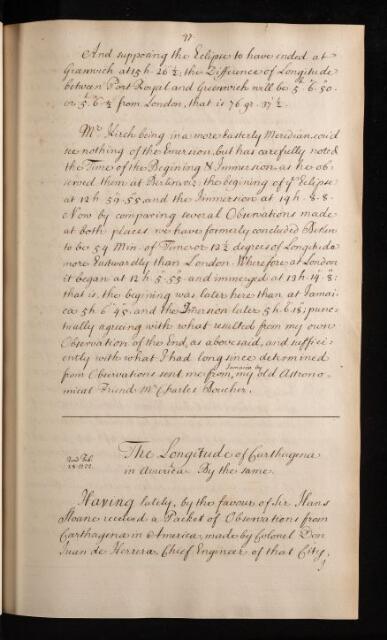 77.
And supposing the Eclipse to have ended at
Greenwich at 15h. 26½, the Difference of Longitude
between Port Royal and Greenwich will be 5h. 6'. 50.
or 5h. 6'. ½ from London, that is 76 gr. 37½.
Mr. Kirch being in a more Easterly Meridian, coud
see nothing of the Emersion, but has carefully noted
the Time of the Begining & Immersion, as he ob-
served them at Berlin viz: the begining of ye Eclipse
at 12h. 59. 55, and the Immersion at 14h. 8. 8.
Now by comparing several Observations made
at both places we have formerly concluded Berlin
to be 54 Min. of Time or 13½ degrees of Longitude
more Eastwardly than London. Wherefore at London
it began at 12h. 5'. 55". and immerged at 13h. 14'. 8":
that is, the begining was later here than at Jamai-
ca 5h. 6'. 45. and the Immersion later 5h. 6'. 15"; punc-
tually agreing with what resulted from my own
Observation of the End, as abovesaid, and suffici-
ently with what I had long since determined
from Observations sent me from Jamaica by my old Astrono-
mical Friend Mr. Charles Boucher.
The Longitude of Carthagena
in America By the same.
Having lately, by the favour of Sir Hans
Sloane received a Packet of Observations from
Carthagena in America, made by Colonel Don
Juan de Herrera Chief Engineer of that City,